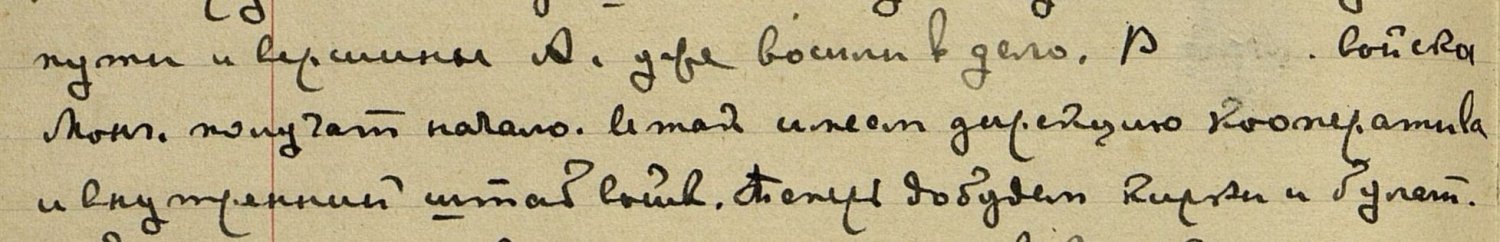 пути и вершины А. уже вошли в дело. В . войска
Монг. получат начало. Китай имеет дирекцию Кооператива
и внутренний штаб войск. Теперь добудем кирки и булат.